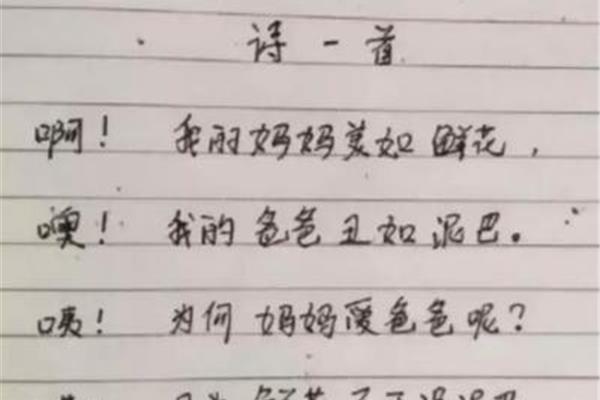 诗一首
啊! 我的妈妈美如鲜花,
噢! 我的爸爸丑如泥巴。
咦! 为何妈妈爱爸爸呢?